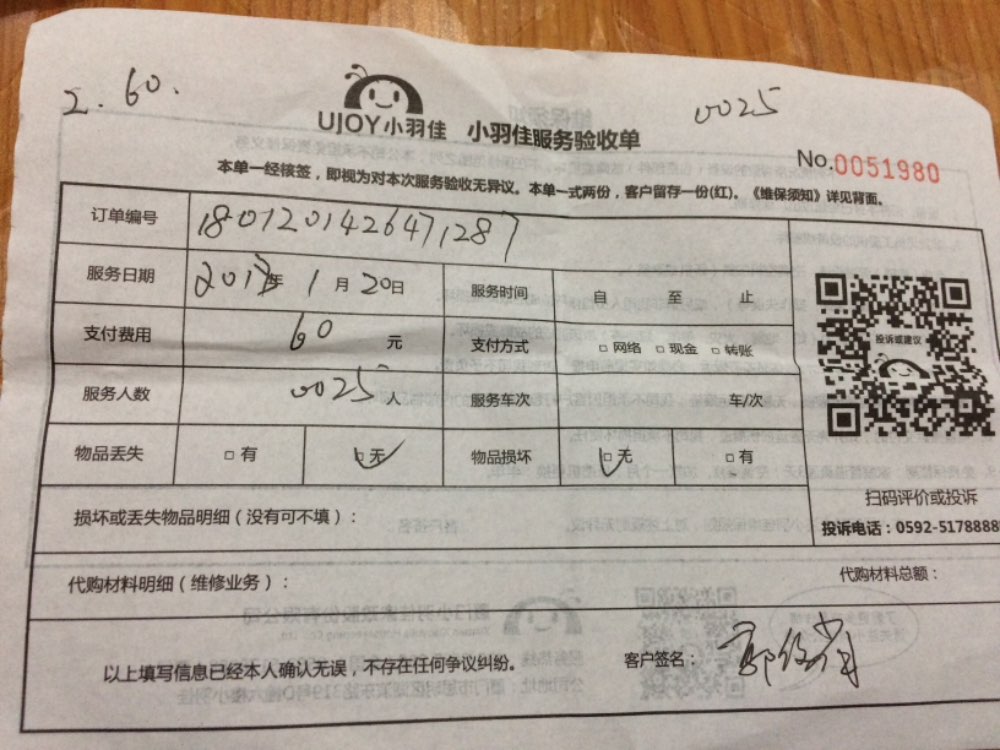 2. 60.
0025
UJOY小羽佳 小羽佳服务验收单
No.0051980
本单一经接签，即视为对本次服务验收无异议。本单一式两份，客户留存一份(红)。《维保须知》详见背面。
订单编号 180120142647,287
服务日期 2017年 1月20日 服务时间 自 至 止
支付费用 60 元 支付方式 □网络 □现金 □转账
服务人数 0025 人 服务车次 车/次
物品丢失 □有 □无 物品损坏 □无 □有
投诉或建议
扫码评价或投诉
损坏或丢失物品明细（没有可不填）：
投诉电话：0592-5178888
代购材料明细（维修业务）：
代购材料总额：
以上填写信息已经本人确认无误，不存在任何争议纠纷。
客户签名：